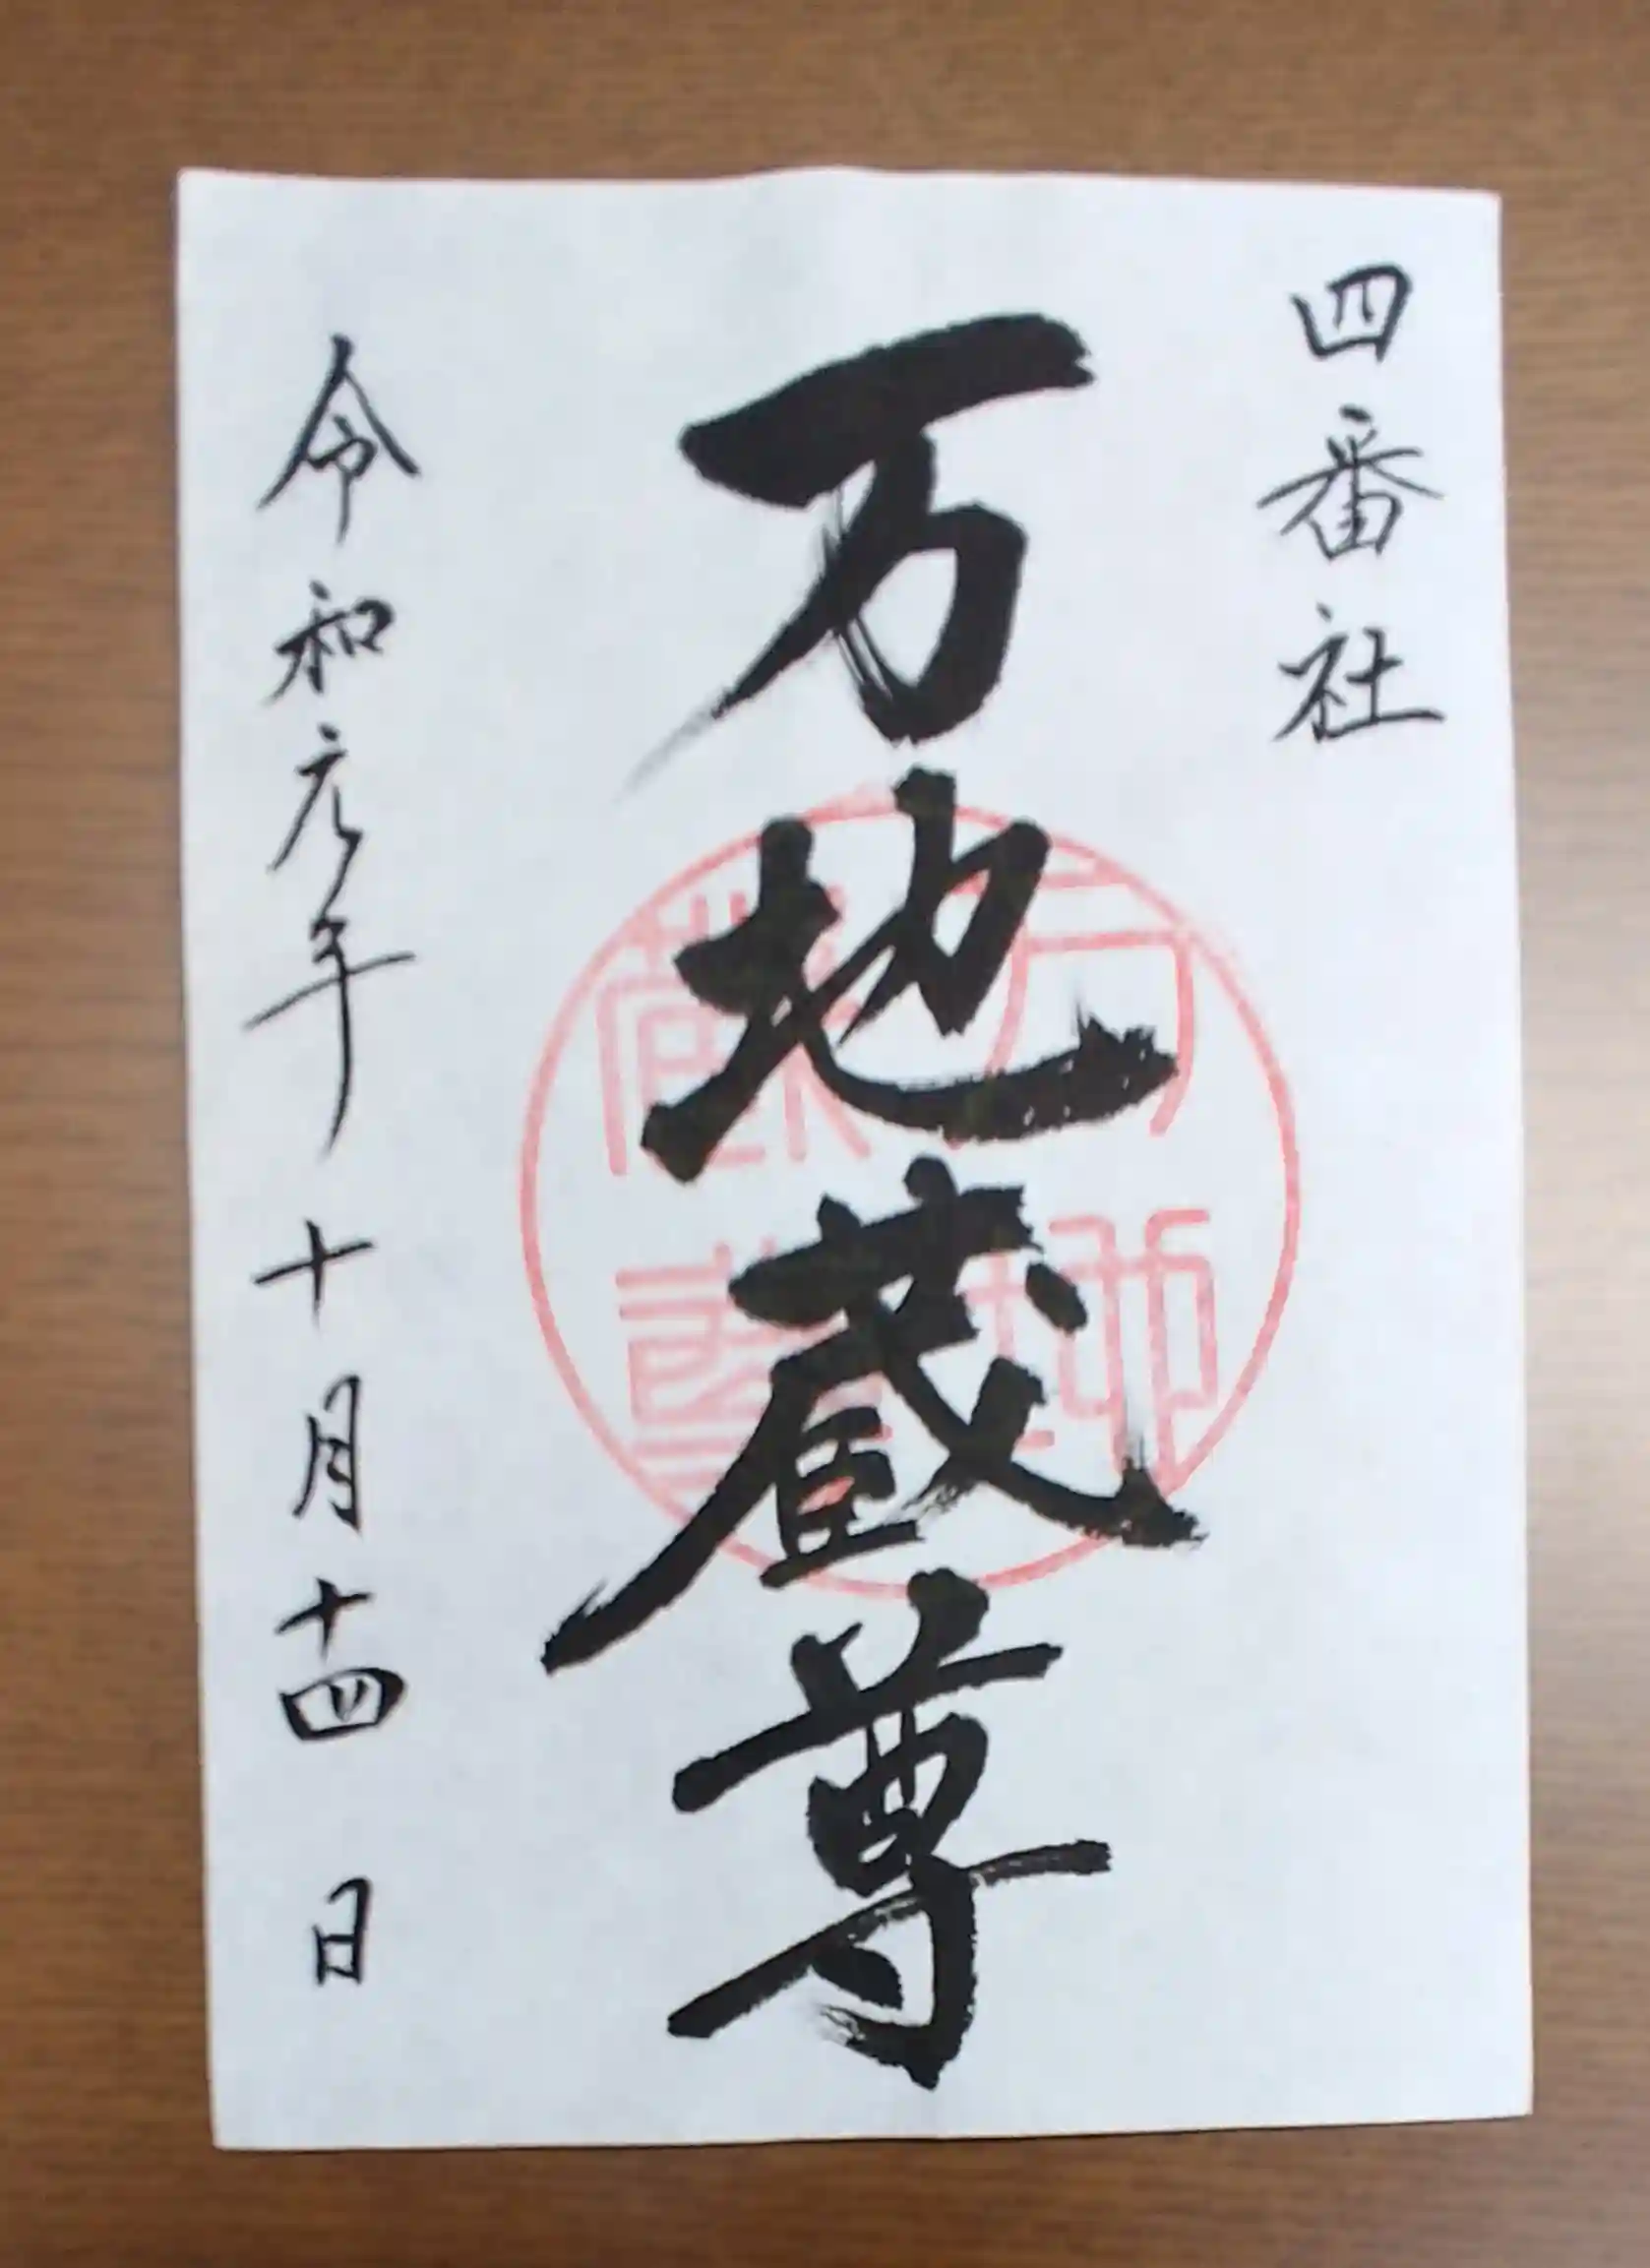 四番社
万地蔵尊
令和元年十月十四日